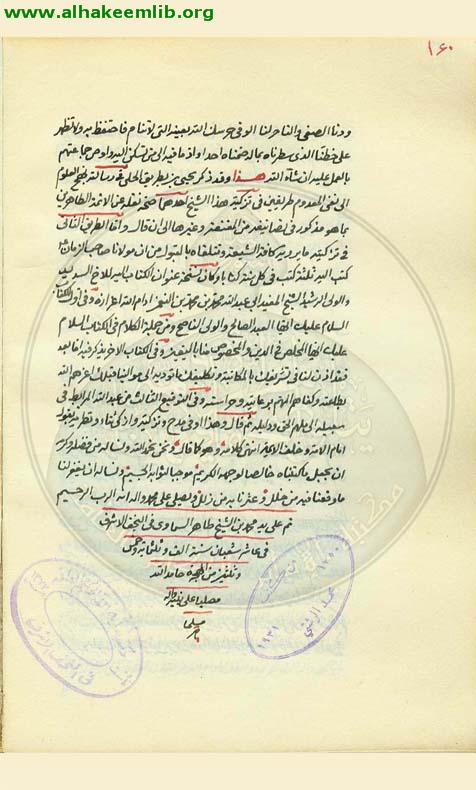 www.alhakeemlib.org
١٦٠
ودنا الصفي والناصر لنا الوفي حرسك الله بعينه التي لا تنام فاحتفظ به ولا تظهر
على خطنا الذي سطرناه بما له ضمناه احدا واد ما فيه الى من تسكن اليه واوص جماعتهم
بالعمل عليه ان شاء الله هذا وقد ذكر يحيى بن بطريق الحلي في رسالة نهج العلوم
الى نفي المعدوم طريقين في تزكية هذا الشيخ احدهما صحة نقله عن الائمة الطاهرين
بما هو مذكور في تصانيفه من المقنعة وغيرها الى ان قال واما الطريق الثاني
في تزكيته ما يرويه كافة الشيعة وتتلقاه بالقبول من ان مولانا صاحب الزمان
كتب اليه ثلثة كتب في كل سنة كتابا وكان نسخة عنوان الكتاب اليه للاخ السديد
والولي الرشيد الشيخ المفيد ابي عبد الله محمد بن محمد بن النعمان ادام الله اعزازه وفي اول الكتاب
السلام عليك ايها العبد الصالح والولي الناصح ومن جملة الكلام في الكتاب السلام
عليك ايها المخلص في الدين والمخصوص فينا باليقين وفي الكتاب الاخر يذكر فيه انا بعد
فقد اذن لنا في تشريفك بالمكاتبة وتكليفك ما تؤديه الى موالينا قبلك اعزهم الله
بطاعته وكفاهم المهم برعايته وحراسته وفي التوقيع الثالث من عبد الله المرابط في
سبيله الى ملهم الحق ودليله ثم قال وهذا اوفى مدح وتزكية وازكى ثناء وتطرية بقول
امام الامة وخلف الائمة انتهى كلامه وهو كما قال ونحن نحمد الله ونسأله من فضله وكرمه
ان يجعل ما كتبناه خالصا لوجهه الكريم موجبا لثوابه الجسيم ونسأله ان يغفر لنا
ما وقعنا فيه من خلل وعثرنا به من زلل ويصلي على محمد واله انه الرب الرحيم
تم على يد محمد بن الشيخ طاهر السماوي في النجف الاشرف
في عاشر شعبان سنة الف وثلثماية وخمس
وثلثين من الهجرة حامدا لله
مصليا على نبيه واله
مسلما